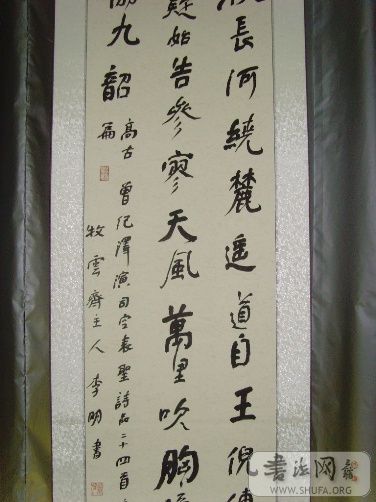 長河繞麓遥道自王倪傳
疑始告參寥天風萬里吹胸
協九韶
高古 曾紀澤演司空表聖詩品二十四首
篇
牧雲齋主人李明書
書法网
WWW.SHUFA.ORG